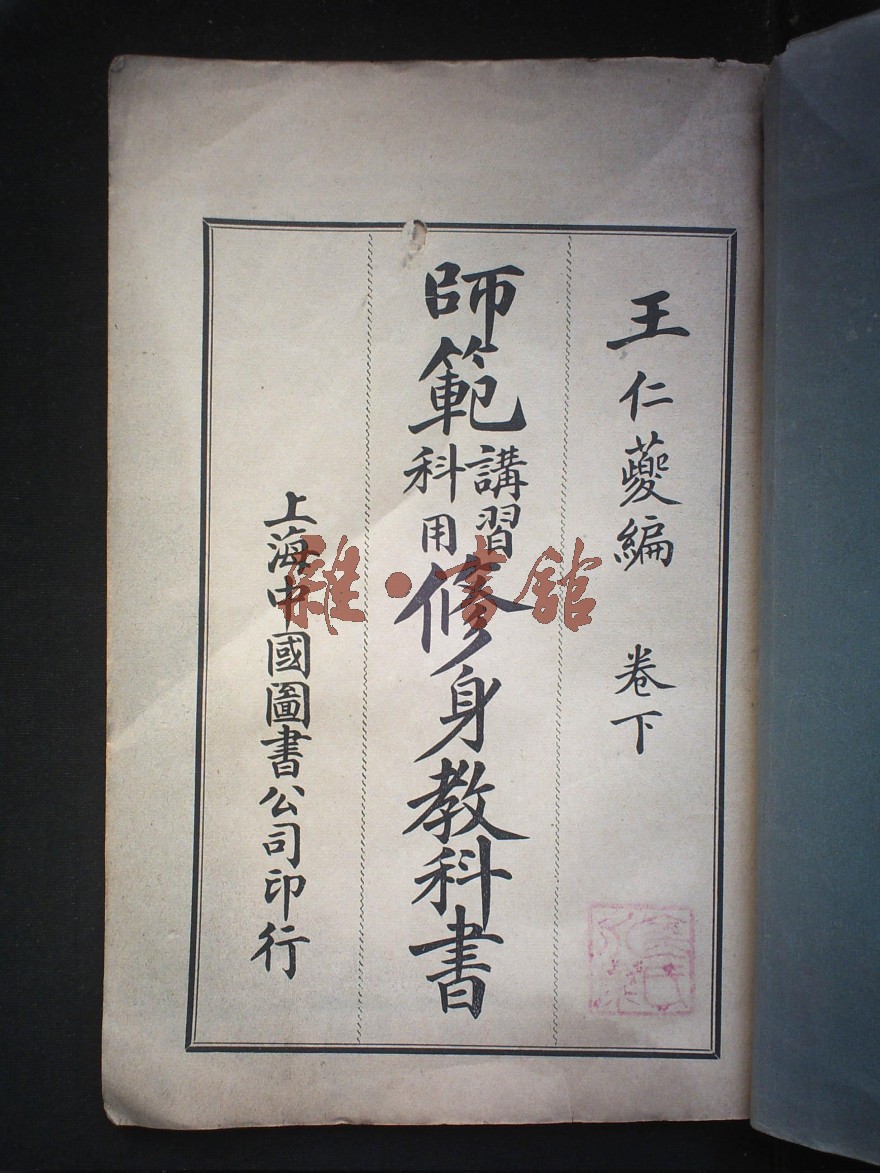 王仁蘷編 卷下
師範講習科用修身教科書
上海中國圖書公司印行
雜·書館